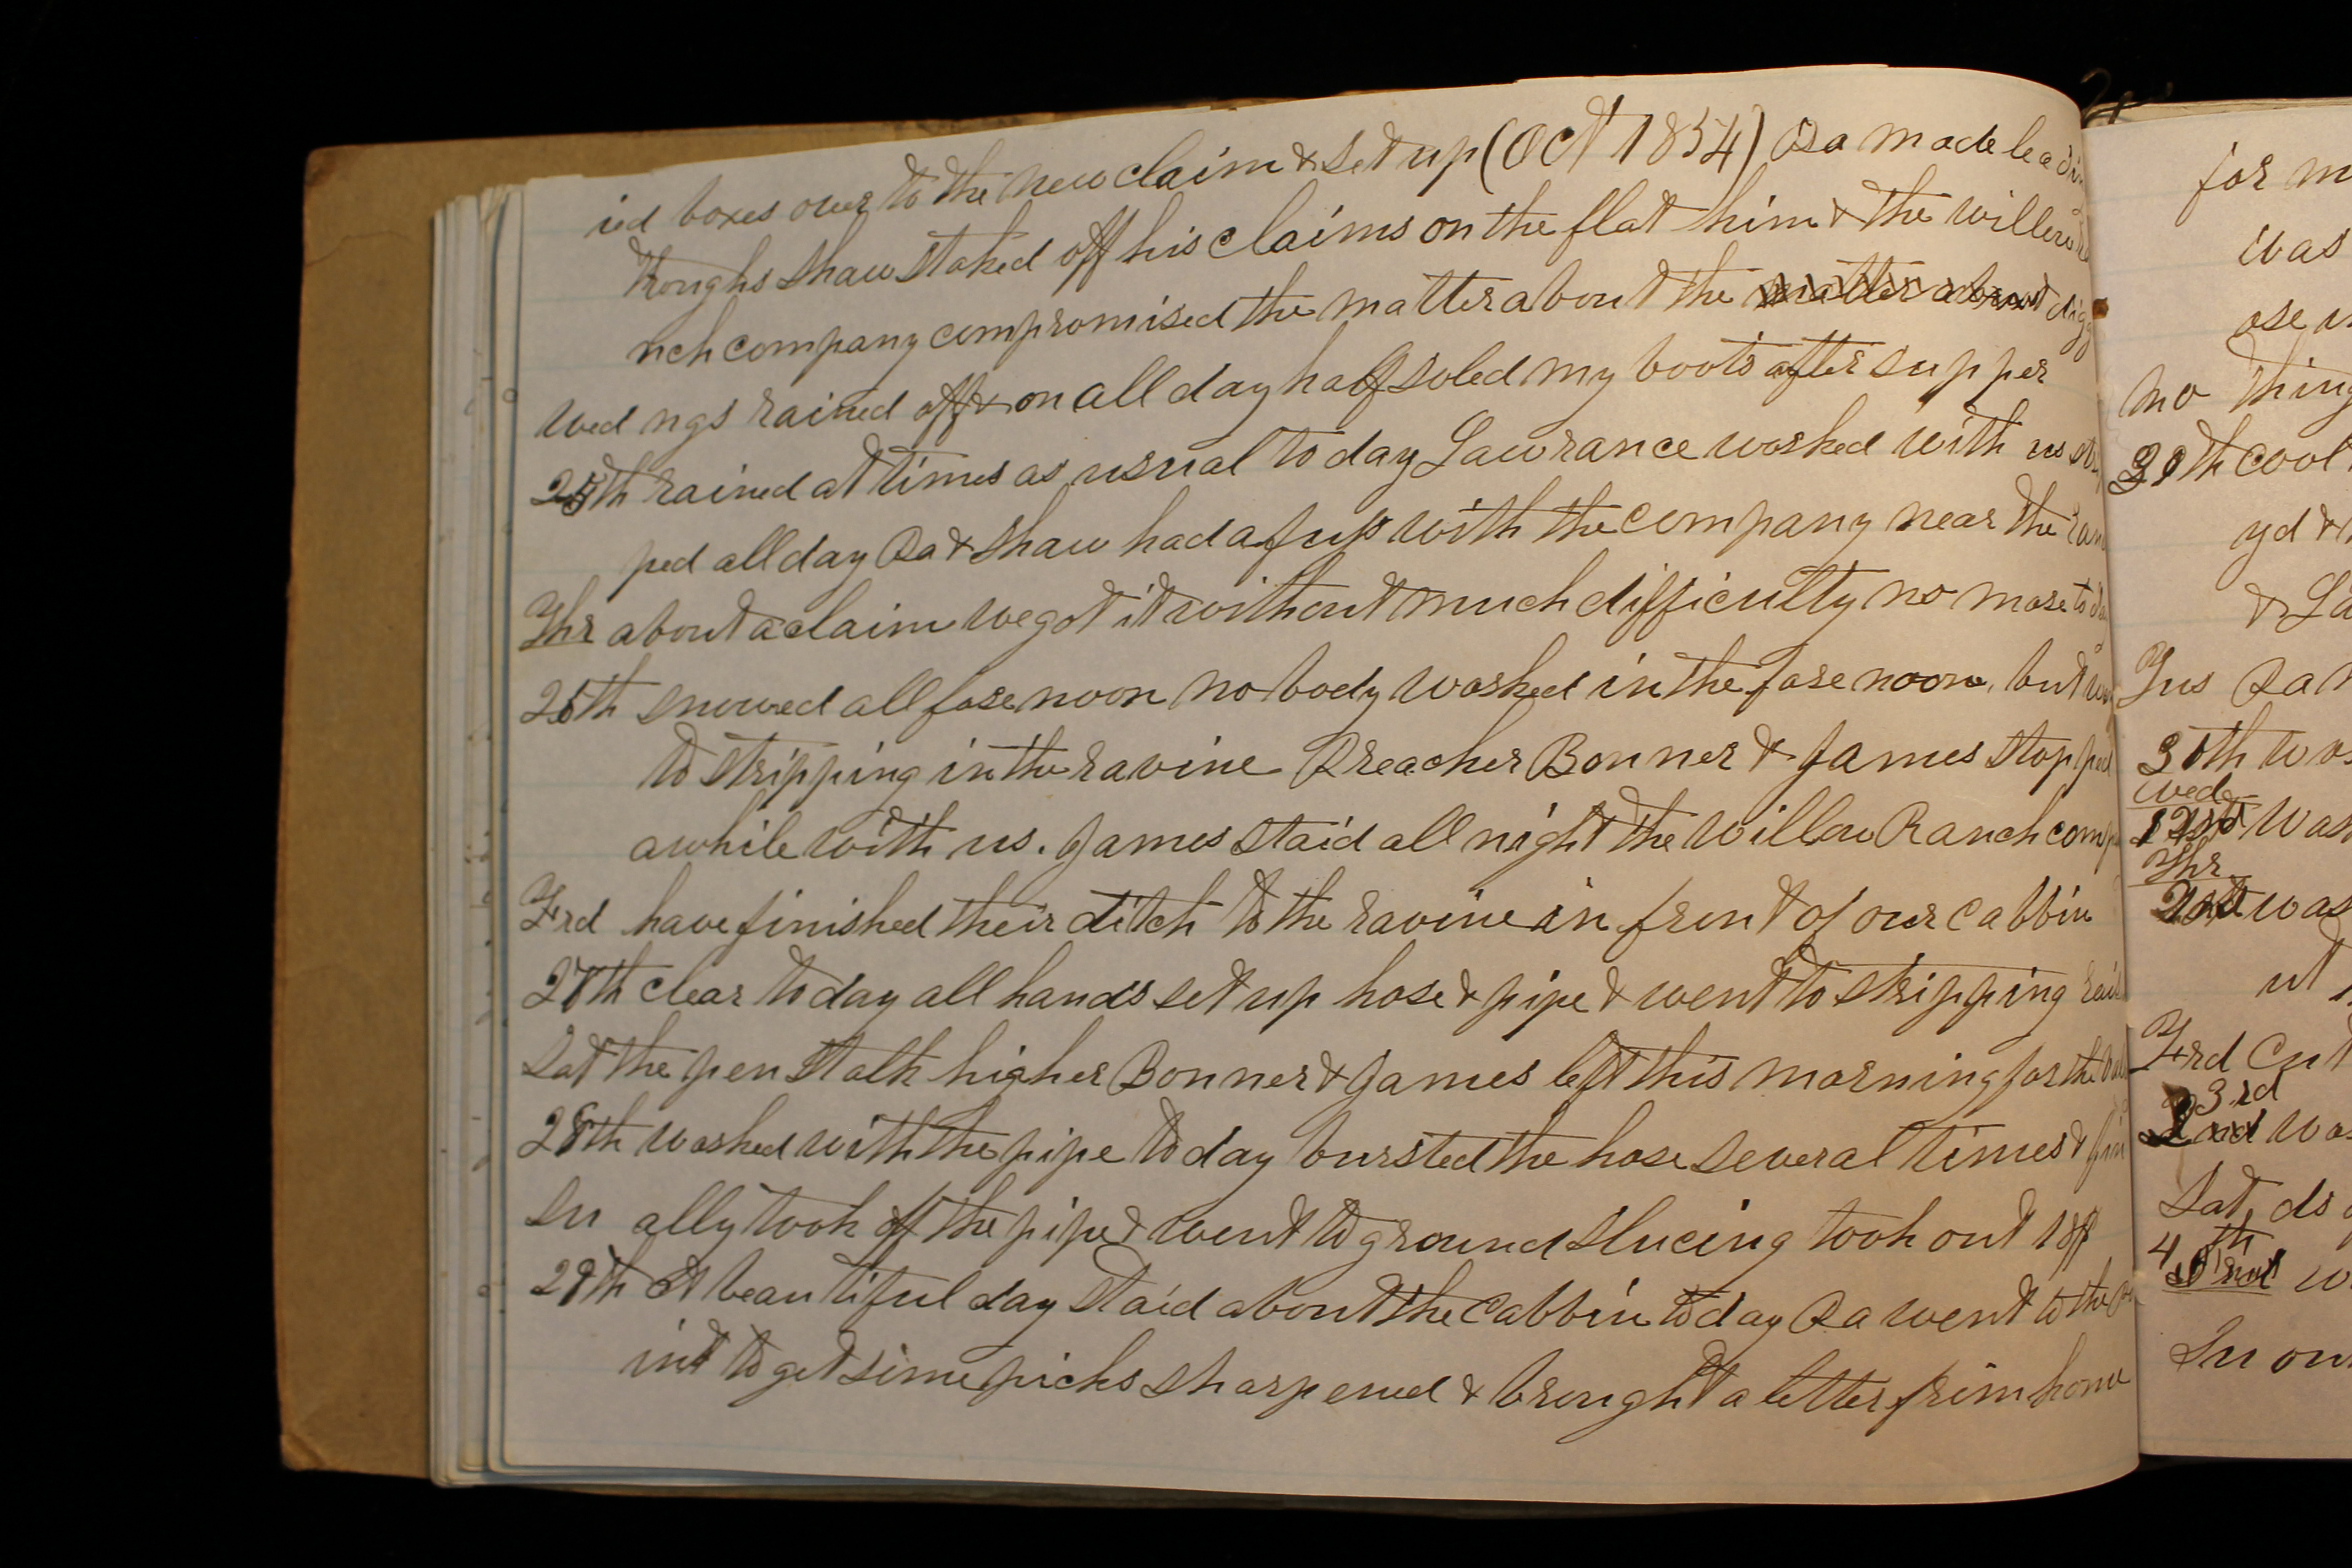 ied boxes over to the new claim & set up (Oct 1854) Pa made leadin
troughs Shaw staked off his claims on the flat him & the willow
nch company compromised the matter about the matter about digg
Wed ngs rained off & on all day half soled my boots after supper
25th rained at times as usual to day Lawrance worked with us
ped all day Pa & Shaw had a fuss with the company near the
Thr about a claim we got it without much difficulty no more to
26th snowed all fore noon no body worked in the fore noon but
to stripping in the ravine Preacher Bonner & James stopped
awhile with us. James staid all night the Willow Ranch comp
Frd have finished their ditch to the ravine in front of our cabbin
27th clear to day all hands set up hose & pipe & went to stripping
Sat the pen stalk higher Bonner & James left this morning for the
28th worked with the pipe to day bursted the hose several times & fin
Su ally took off the pipe & went to ground slucing took out
29th A beautiful day staid about the cabbin to day Pa went to the
int to get some picks sharpened & brought a letter from home
for m
was
ose
no thing
th cool
yd &
& La
Tus Pa
30th
Wed
was
Thr
was
ut
Frd Cut
3rd
Sat ds
4th
Su